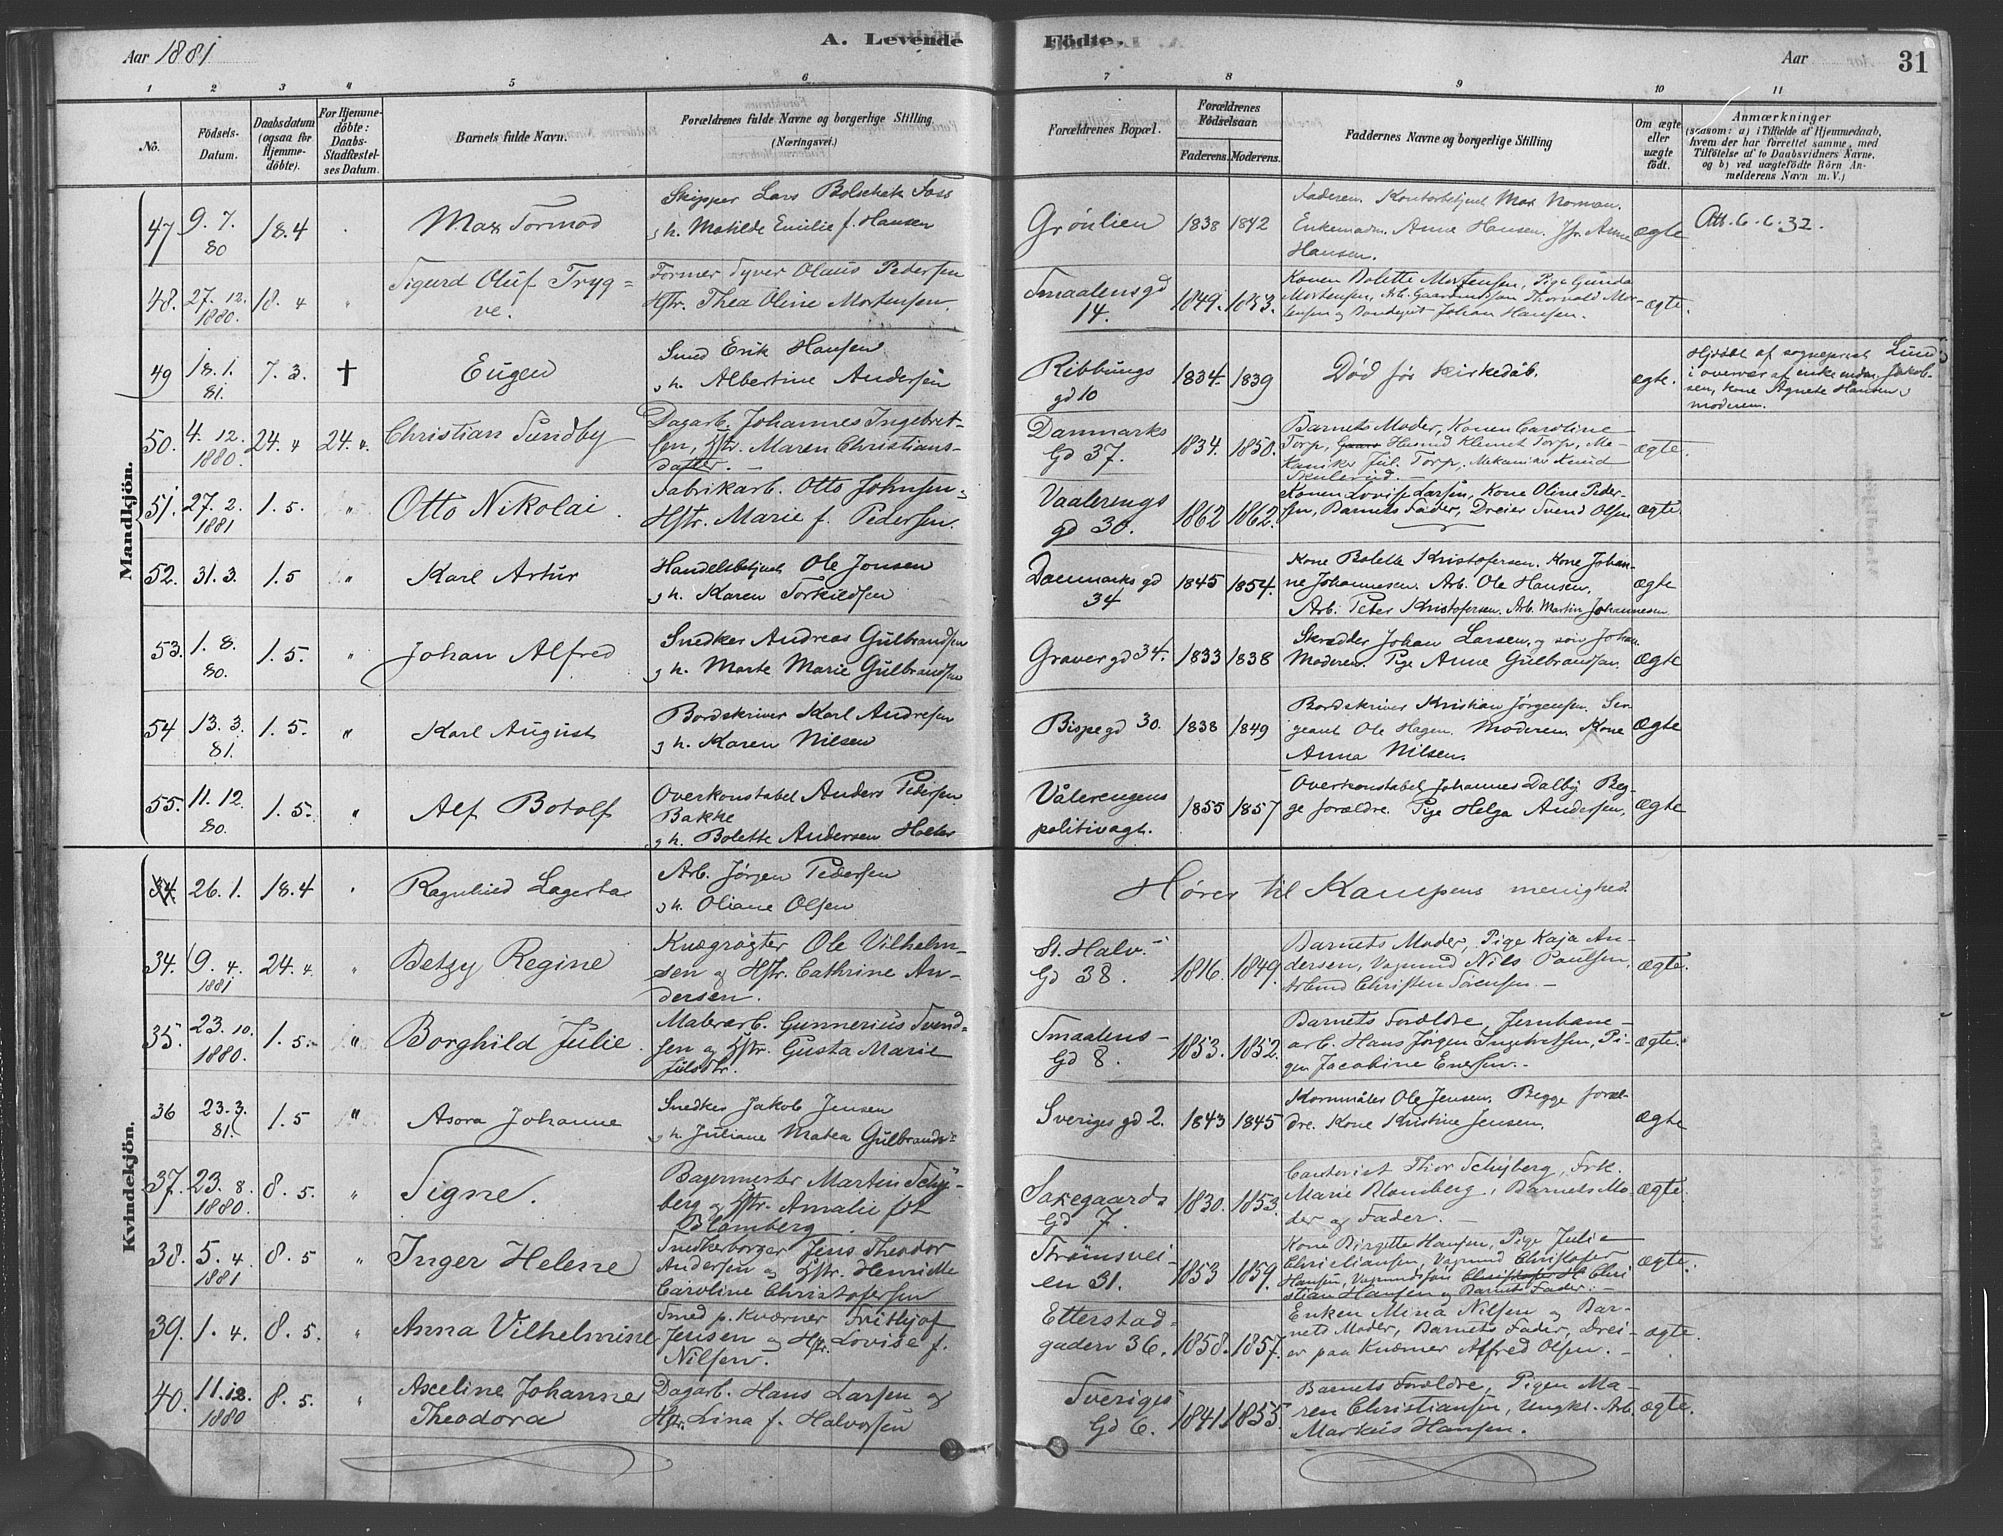 Aar 1881
A. Levende Födte.
Aar
31
1 2 3 4 5 6 7 8 9 10 11
No.
Födsels-Datum.
Daabsdatum (ogsaa for Hjemmedöbte).
For Hjemmedöbte: Daabs-Stadfæstelses Datum.
Barnets fulde Navn.
Forældrenes fulde Navne og borgerlige Stilling (Næringsvei.)
Forældrenes Bopæl.
Forældrenes Födselsaar.
Faderens. Moderens.
Faddernes Navne og borgerlige Stilling
Om ægte eller uægte födt.
Anmærkninger
(saasom: a) i Tilfælde af Hjemmedaab, hvem der har forrettet samme, med Tilföielse af to Daabsvidners Navne, og b) ved uægtefödte Börn Anmelderens Navn m. V.)
Mandkjön.
47 9. 7. 80 18.4 Max Tormod
Skipper Lars Foss
g h. Matilde Emilie f. Hansen
Grönlien 1838 1842
Faderen. Kontorbetjent Max Norman.
Enkemadm. Anne Hansen. Jfr. Anne
Hansen.
ægte
Att. 6-6.32.
48. 27. 12. 1880. 18. 4 " Sigurd Oluf Tryg=
ve.
Former Syver Olaus Pedersen
Hstr. Thea Oline Mortensen.
Smaalensgd
14. 1849. 1853.
Konen Bolette Mortensen, Pige Gunda
Mortensen, Arb. Thorvald Mor-
tensen og Johan Hansen.
ægte.
49 18. 1. 81. 7. 3. † Eugen
Smed Erik Hansen
g h. Albertine Andersen
Ribbungs
gd 10 1834. 1839
Död før kirkedåb.
ægte.
Hjdöbt af sogneprest Lund
i overvær af enkemadm. Jakob-
sen, kone Agnete Hansen,
moderen.
50. 4. 12. 1880. 24. 4 24. 4. Christian Sundby
Dagarb. Johannes Ingebret-
sen, Hstr. Maren Christians-
datter. —
Danmarks
Gd 37. 1834. 1850.
Barnets Moder, Konen Caroline
Torp, Husmd Klemet Torp, Me-
kaniker Jul. Torp, Mekaniker Knud
ægte.
51. 27. 2. 1881 1. 5. " Otto Nikolai.
Fabrikarb. Otto Johnsen
Hstr. Marie f. Pedersen.
Vaalerengs
gd 30. 1862 1862.
Konen Lovise Larsen, Kone Oline Peder-
sen, Barnets Fader, Dreier Svend Olsen
ægte.
52. 31. 3. 1.5 " Karl Artur
Handelsbetjent Ole Jonsen
g h. Karen Torkildsen
Danmarks gd
34 1845 1854.
Kone Bolette Kristofersen. Kone Johan-
ne Johannesen. Arb. Ole Hansen.
Arb. Peter Kristofersen. Arb. Martin Johannesen
ægte
53. 1. 8. 80. 1. 5. " Johan Alfred
Snedker Andreas Gulbrandsen
g h. Marte Marie Gulbrandsen
Graver gd 34. 1833 1838
Skrædder Johan Larsen, og søn Johan
Moderen. Pige Anne Gulbrandsen.
ægte
54 13. 3. 81. 1. 5. " Karl August
Bordskriver Karl Andresen
g h. Karen Nilsen
Bispegd 30. 1838 1849
Bordskriver Kristian Jørgensen. Ser-
geant Ole Hagen. Moderen. Kone
Anna Nilsen.
ægte
55. 11. 12. 80. 1. 5. " Alf Botolf
Overkonstabel Anders Pedersen
Bakke
g h. Bolette Andersen Holter
Vålerengens
politivagt. 1855 1857
Overkonstabel Johannes Dalby. Beg-
ge forældre. Pige Helga Andersen,
ægte
Kvindekjön.
34 26. 1. 18.4 Ragnhild Lagerta
Arb. Jørgen Pedersen
g h. Oliane Olsen
Hører til Kampens menighed.
34. 9. 4. 1881 24. 4. " Betzy Regine
Kvægrøgter Ole Vilhelm-
sen og Hstr. Cathrine An-
dersen.
St. Halv.-
Gd 38. 1846. 1849.
Barnets Moder, Pige Kaja An-
dersen, Vognmd Nils Paulsen,
Arbmd Christen Sørensen. —
ægte.
35. 23. 10. 1880. 1. 5. " Borghild Julie.
Malerarb. Gunnerius Svend-
sen og Hstr. Gusta Marie
Julsdtr.
Smaalens-
Gd 8. 1853. 1852.
Barnets Forældre, Jernbane-
arb. Hans Jørgen Ingebretsen, Pi-
gen Jacobine Enersen. -
ægte.
36 23. 3. 81. 1. 5 " Asora Johanne
Snedker Jakob Jensen
g h. Juliane Matea Gulbrands.
Sveriges gd 2. 1843 1845
Kornmåler Ole Jensen. Begge foræl-
dre. Kone Kristine Jensen.
ægte
37. 23. 8. 1880. 8. 5. " Signe.
Bagermester Martin Schy-
berg og Hstr. Amalie føt
Blomberg.
Saxegaards
Gd 7. 1830. 1853.
Contorist Thor Schyberg, Frk.
Marie Blomberg, Barnets Mo-
der og Fader. —
ægte.
38. 5. 4. 1881 8. 5 " Inger Helene
Snedkerborger Jens Theodor
Andersen og Hstr. Henriette
Caroline Christofersen
Strømsvei
en 31. 1853 1859.
Kone Birgitte Hansen, Pige Julie
Christiansen, Vognmd Christofer
Hansen, Vognmdssøn Chri
stian Hansen og Barnets Fader. -
ægte.
39. 1. 4. 8. 5. " Anna Vilhelmine
Smed p. Kværner Frithjof
Jensen og Hstr. Lovise f.
Nilsen.
Etterstad-
gaden 36. 1858. 1857.
Enken Mina Nilsen og Bar-
nets Moder, Barnets Fader, Drei-
er paa Kværner Alfred Olsen. -
ægte.
40. 11.12. 1880 8. 5. " Axeline Johanne
Theodora
Dagarb. Hans Larsen og
Hstr. Lina f. Halvorsen
Sveriges
Gd 6. 1841 1855.
Barnets Forældre, Pigen Ma-
ren Christiansen, Ungkl. Arb.
Markus Hansen.
ægte.